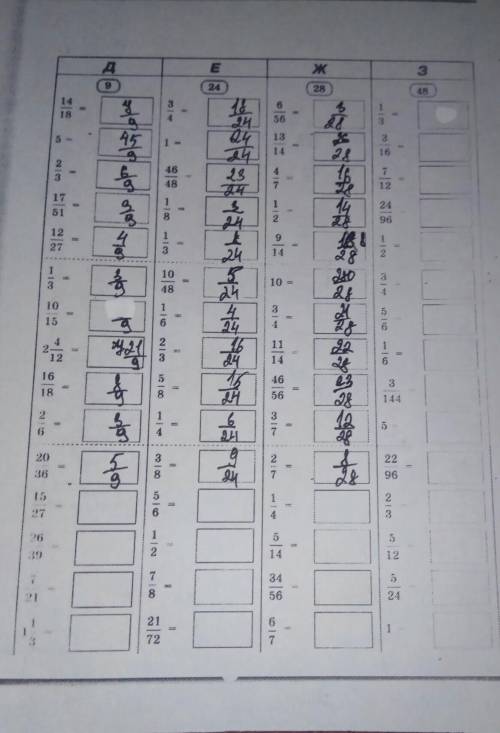 Д Е Ж З
9 24 28 48
14/18 = 7/9 3/4 = 18/24 6/56 = 3/28 1/3 =
5 = 45/9 1 = 24/24 13/14 = 26/28 3/16 =
2/3 = 6/9 46/48 = 23/24 4/7 = 16/28 7/12 =
17/51 = 3/9 1/8 = 3/24 1/2 = 14/28 24/96 =
12/27 = 4/9 1/3 = 8/24 9/14 = 18/28 1/2 =
1/3 = 3/9 10/48 = 5/24 10 = 280/28 3/4 =
10/15 = /9 1/6 = 4/24 3/4 = 21/28 5/6 =
2 4/12 = 21/9 2/3 = 16/24 11/14 = 22/28 1/6 =
16/18 = 8/9 5/8 = 15/24 46/56 = 23/28 3/144
2/6 = 3/9 1/4 = 6/24 3/7 = 12/28 5 =
20/36 = 5/9 3/8 = 9/24 2/7 = 8/28 22/96 =
15/27 = 5/6 = 1/4 = 2/3 =
26/39 = 1/2 = 5/14 = 5/12
7/21 = 7/8 = 34/56 = 5/24
1 1/3 = 21/72 = 6/7 = 1 =